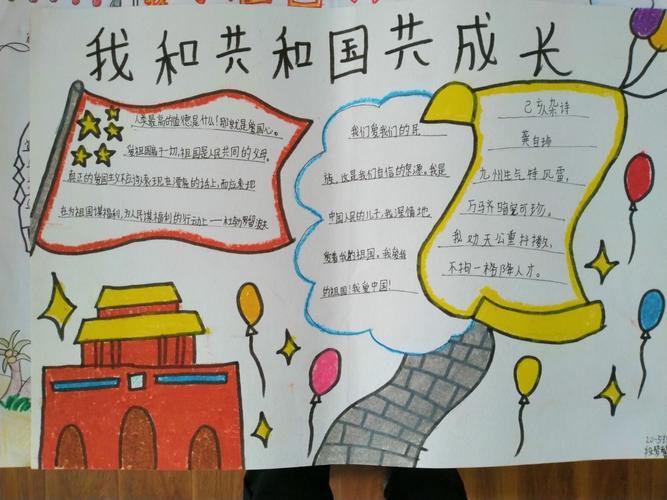 我和共和国共成长
人类最高的道德是什么?那就是爱国心。
爱祖国高于一切,祖国是人民共同的父母。
真正的爱国主义不应该表现在漂亮的话上,而应表现
在为祖国谋福利,为人民谋福利的行动上——杜勃罗留波夫
我们爱我们的民
族,这是我们自信的泉源。我是
中国人民的儿子,我深情地
爱着我的祖国。我爱我
的祖国!我爱中国!
己亥杂诗
龚自珍
九州生气恃风雷,
万马齐 可珍。
我劝天公重抖擞,
不拘一格降人才。